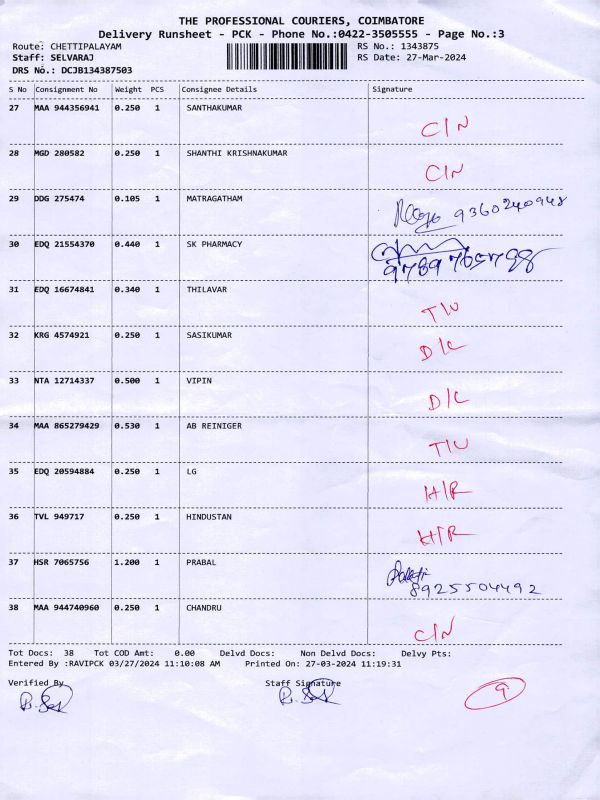 THE PROFESSIONAL COURIERS, COIMBATORE
Delivery Runsheet - PCK - Phone No.:0422-3505555 - Page No.:3
Route: CHETTIPALAYAM RS No.: 1343875
Staff: SELVARAJ RS Date: 27-Mar-2024
DRS No.: DCJB134387503
S No Consignment No Weight PCS Consignee Details Signature
27 MAA 944356941 0.250 1 SANTHAKUMAR
C/N
28 MGD 280582 0.250 1 SHANTHI KRISHNAKUMAR
C/N
29 DDG 275474 0.105 1 MATRAGATHAM
9360240948
30 EDQ 21554370 0.440 1 SK PHARMACY
9789765798
31 EDQ 16674841 0.340 1 THILAVAR
T/U
32 KRG 4574921 0.250 1 SASIKUMAR
D/L
33 NTA 12714337 0.500 1 VIPIN
D/L
34 MAA 865279429 0.530 1 AB REINIGER
T/U
35 EDQ 20594884 0.250 1 LG
H/R
36 TVL 949717 0.250 1 HINDUSTAN
H/R
37 HSR 7065756 1.200 1 PRABAL
8925504492
38 MAA 944740960 0.250 1 CHANDRU
C/N
Tot Docs: 38 Tot COD Amt: 0.00 Delvd Docs: Non Delvd Docs: Delvy Pts:
Entered By :RAVIPCK 03/27/2024 11:10:08 AM Printed On: 27-03-2024 11:19:31
Verified By Staff Signature
9